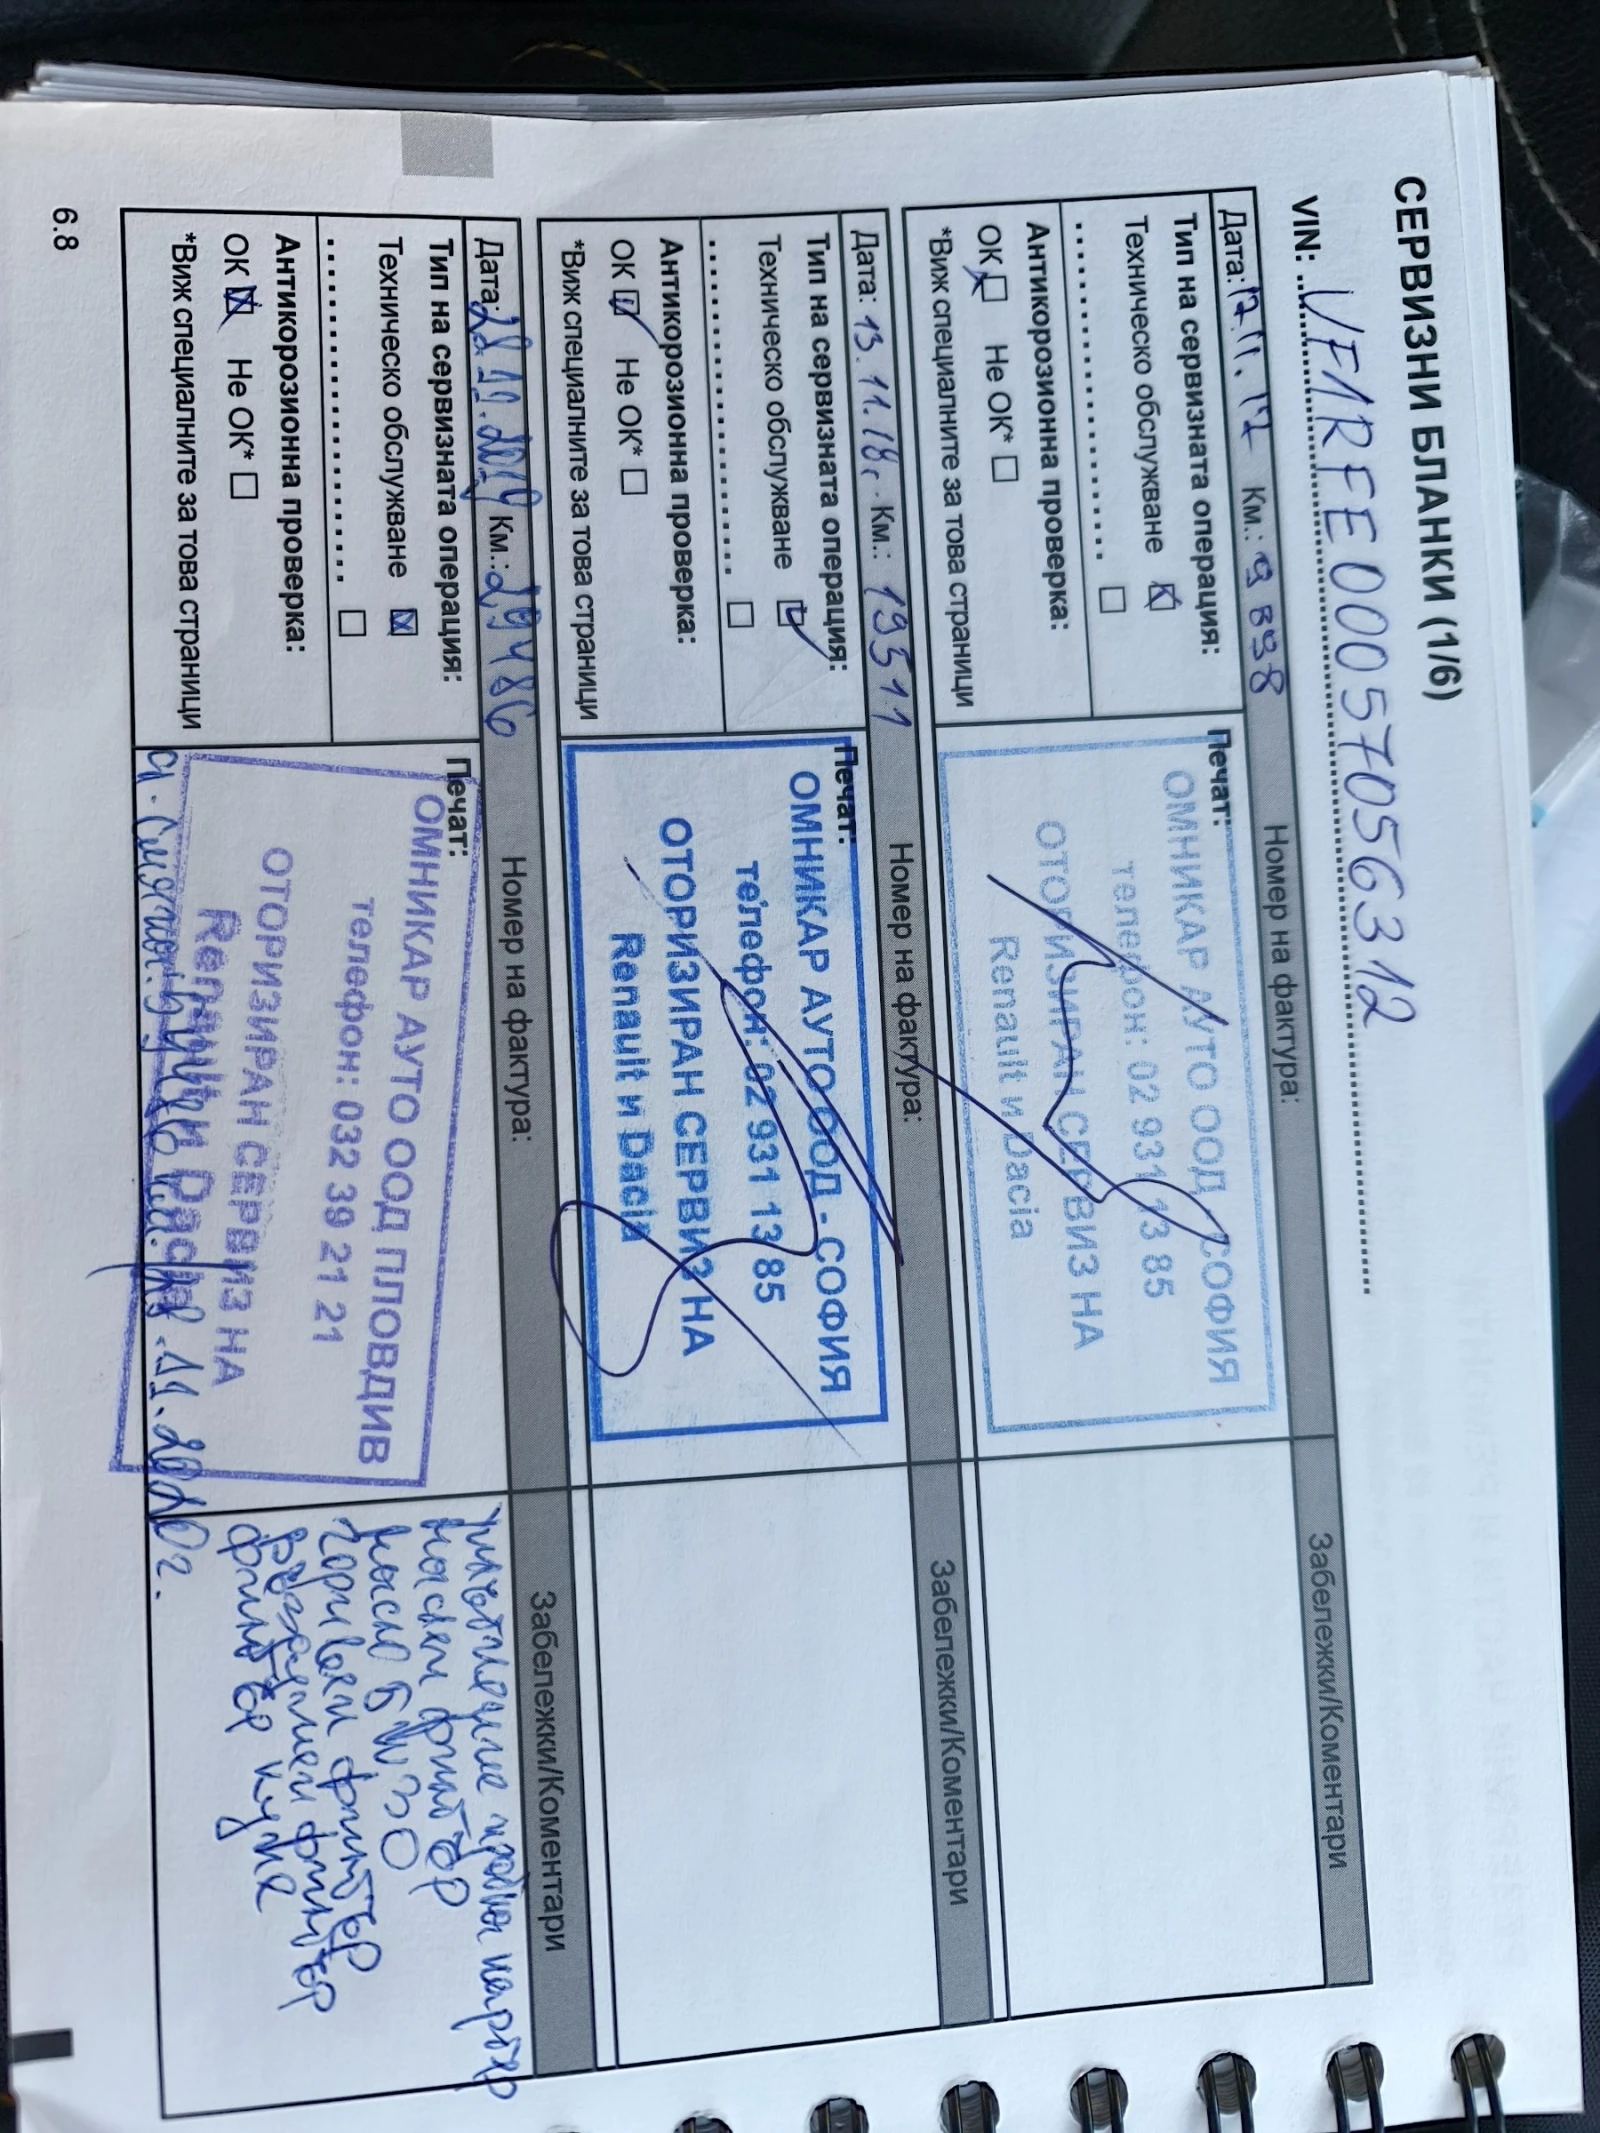 СЕРВИЗНИ БЛАНКИ (1/6)
VIN: VF1RFE00057056312
Дата: Км.: 9 898 Номер на фактура: Забележки/Коментари
Тип на сервизната операция: Печат:
Техническо обслужване
Антикорозионна проверка:
ОК Не ОК*
*Виж специалните за това страници
ОМНИКАР АУТО ООД - СОФИЯ
телефон: 02 931 13 85
ОТОРИЗИРАН СЕРВИЗ НА
Renault и Dacia
Дата: 13.11.18г. Км.: 19511 Номер на фактура: Забележки/Коментари
Тип на сервизната операция: Печат:
Техническо обслужване
Антикорозионна проверка:
ОК Не ОК*
*Виж специалните за това страници
ОМНИКАР АУТО ООД - СОФИЯ
телефон: 02 931 13 85
ОТОРИЗИРАН СЕРВИЗ НА
Renault и Dacia
Дата: 22.11.2019 Км.: 29486 Номер на фактура: Забележки/Коментари
Тип на сервизната операция: Печат:
Техническо обслужване
Антикорозионна проверка:
ОК Не ОК*
*Виж специалните за това страници
ОМНИКАР АУТО ООД ПЛОВДИВ
телефон: 032 39 21 21
ОТОРИЗИРАН СЕРВИЗ НА
Renault и Dacia
уплътнение пробка картер
маслен филтър
масло 5W30
горивен филтър
въздушен филтър
филтър купе
11.2020г.
6.8